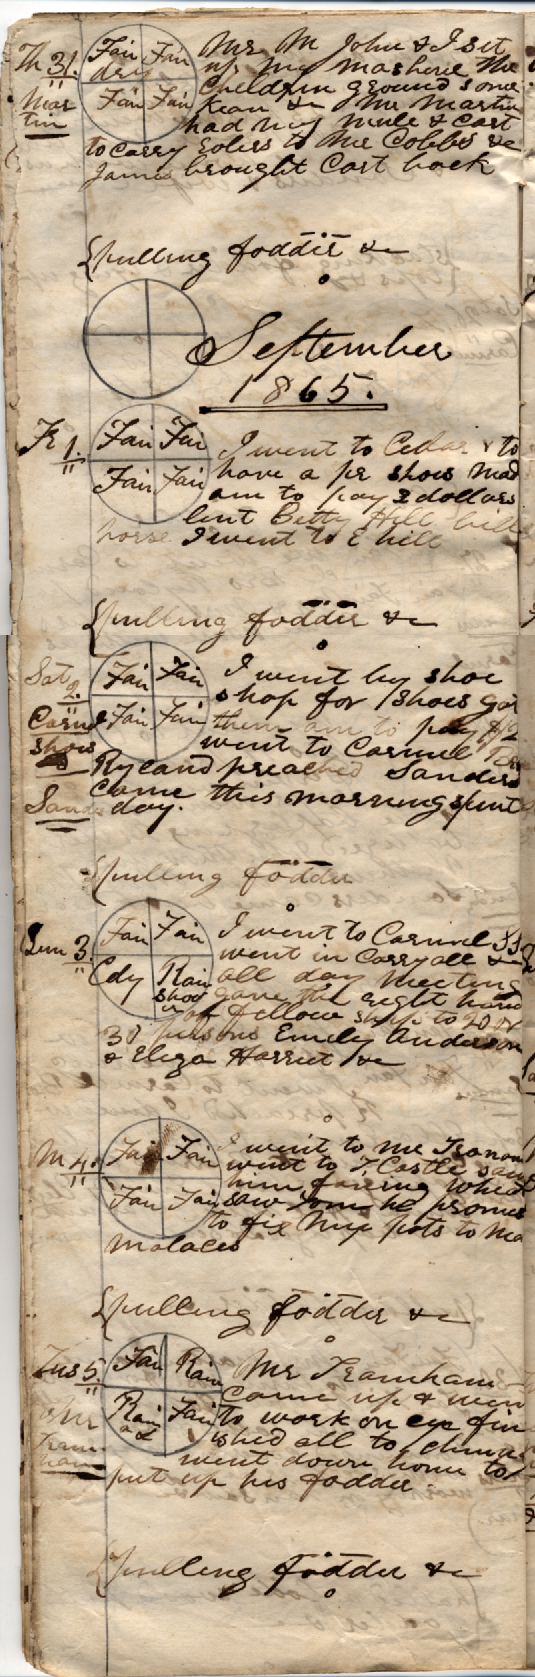 Th 31. Fair Fair Mr M John & I set
dry up my mashene the
Mar Fair Fair children ground some
tin Kean &c Mr Martin
had my mule & cart
to carry to Mr Cobbs &c
James brought Cart back
pulling fodder &c
September
1865.
Fr 1. Fair Fair I went to Cedar & to
Fair Fair have a pr shoes mad
am to pay 2 dollars
lent Betty Hill
horse I went to E hill
pulling fodder &c
Sat 2. Fair Fair I went by shoe
shop for shoes got
Carmel Fair Fair them am to pay $2
shoes went to Carmel
Ryeand preached Sanders
came this morning spent
Sand day.
pulling fodder
Sun 3. Fair Fair I went to Carmel SS
went in Carryall &c
Cdy Rain all day meeting
show gave the right hand
of fellow ship to 20 or
30 persons Emily Anderson
& Eliza Harriet &c
M 4. Fair Fair I went to me
went to F. Castle saw
him
Fair Fair saw he promis
to fix my pots to ma
molaces
pulling fodder &c
Tues 5. Fair Rain Mr Framham
came up & went
Mr Rain Fair to work on fin
ished all to chim
went down home to
put up his fodder
pulling fodder &c